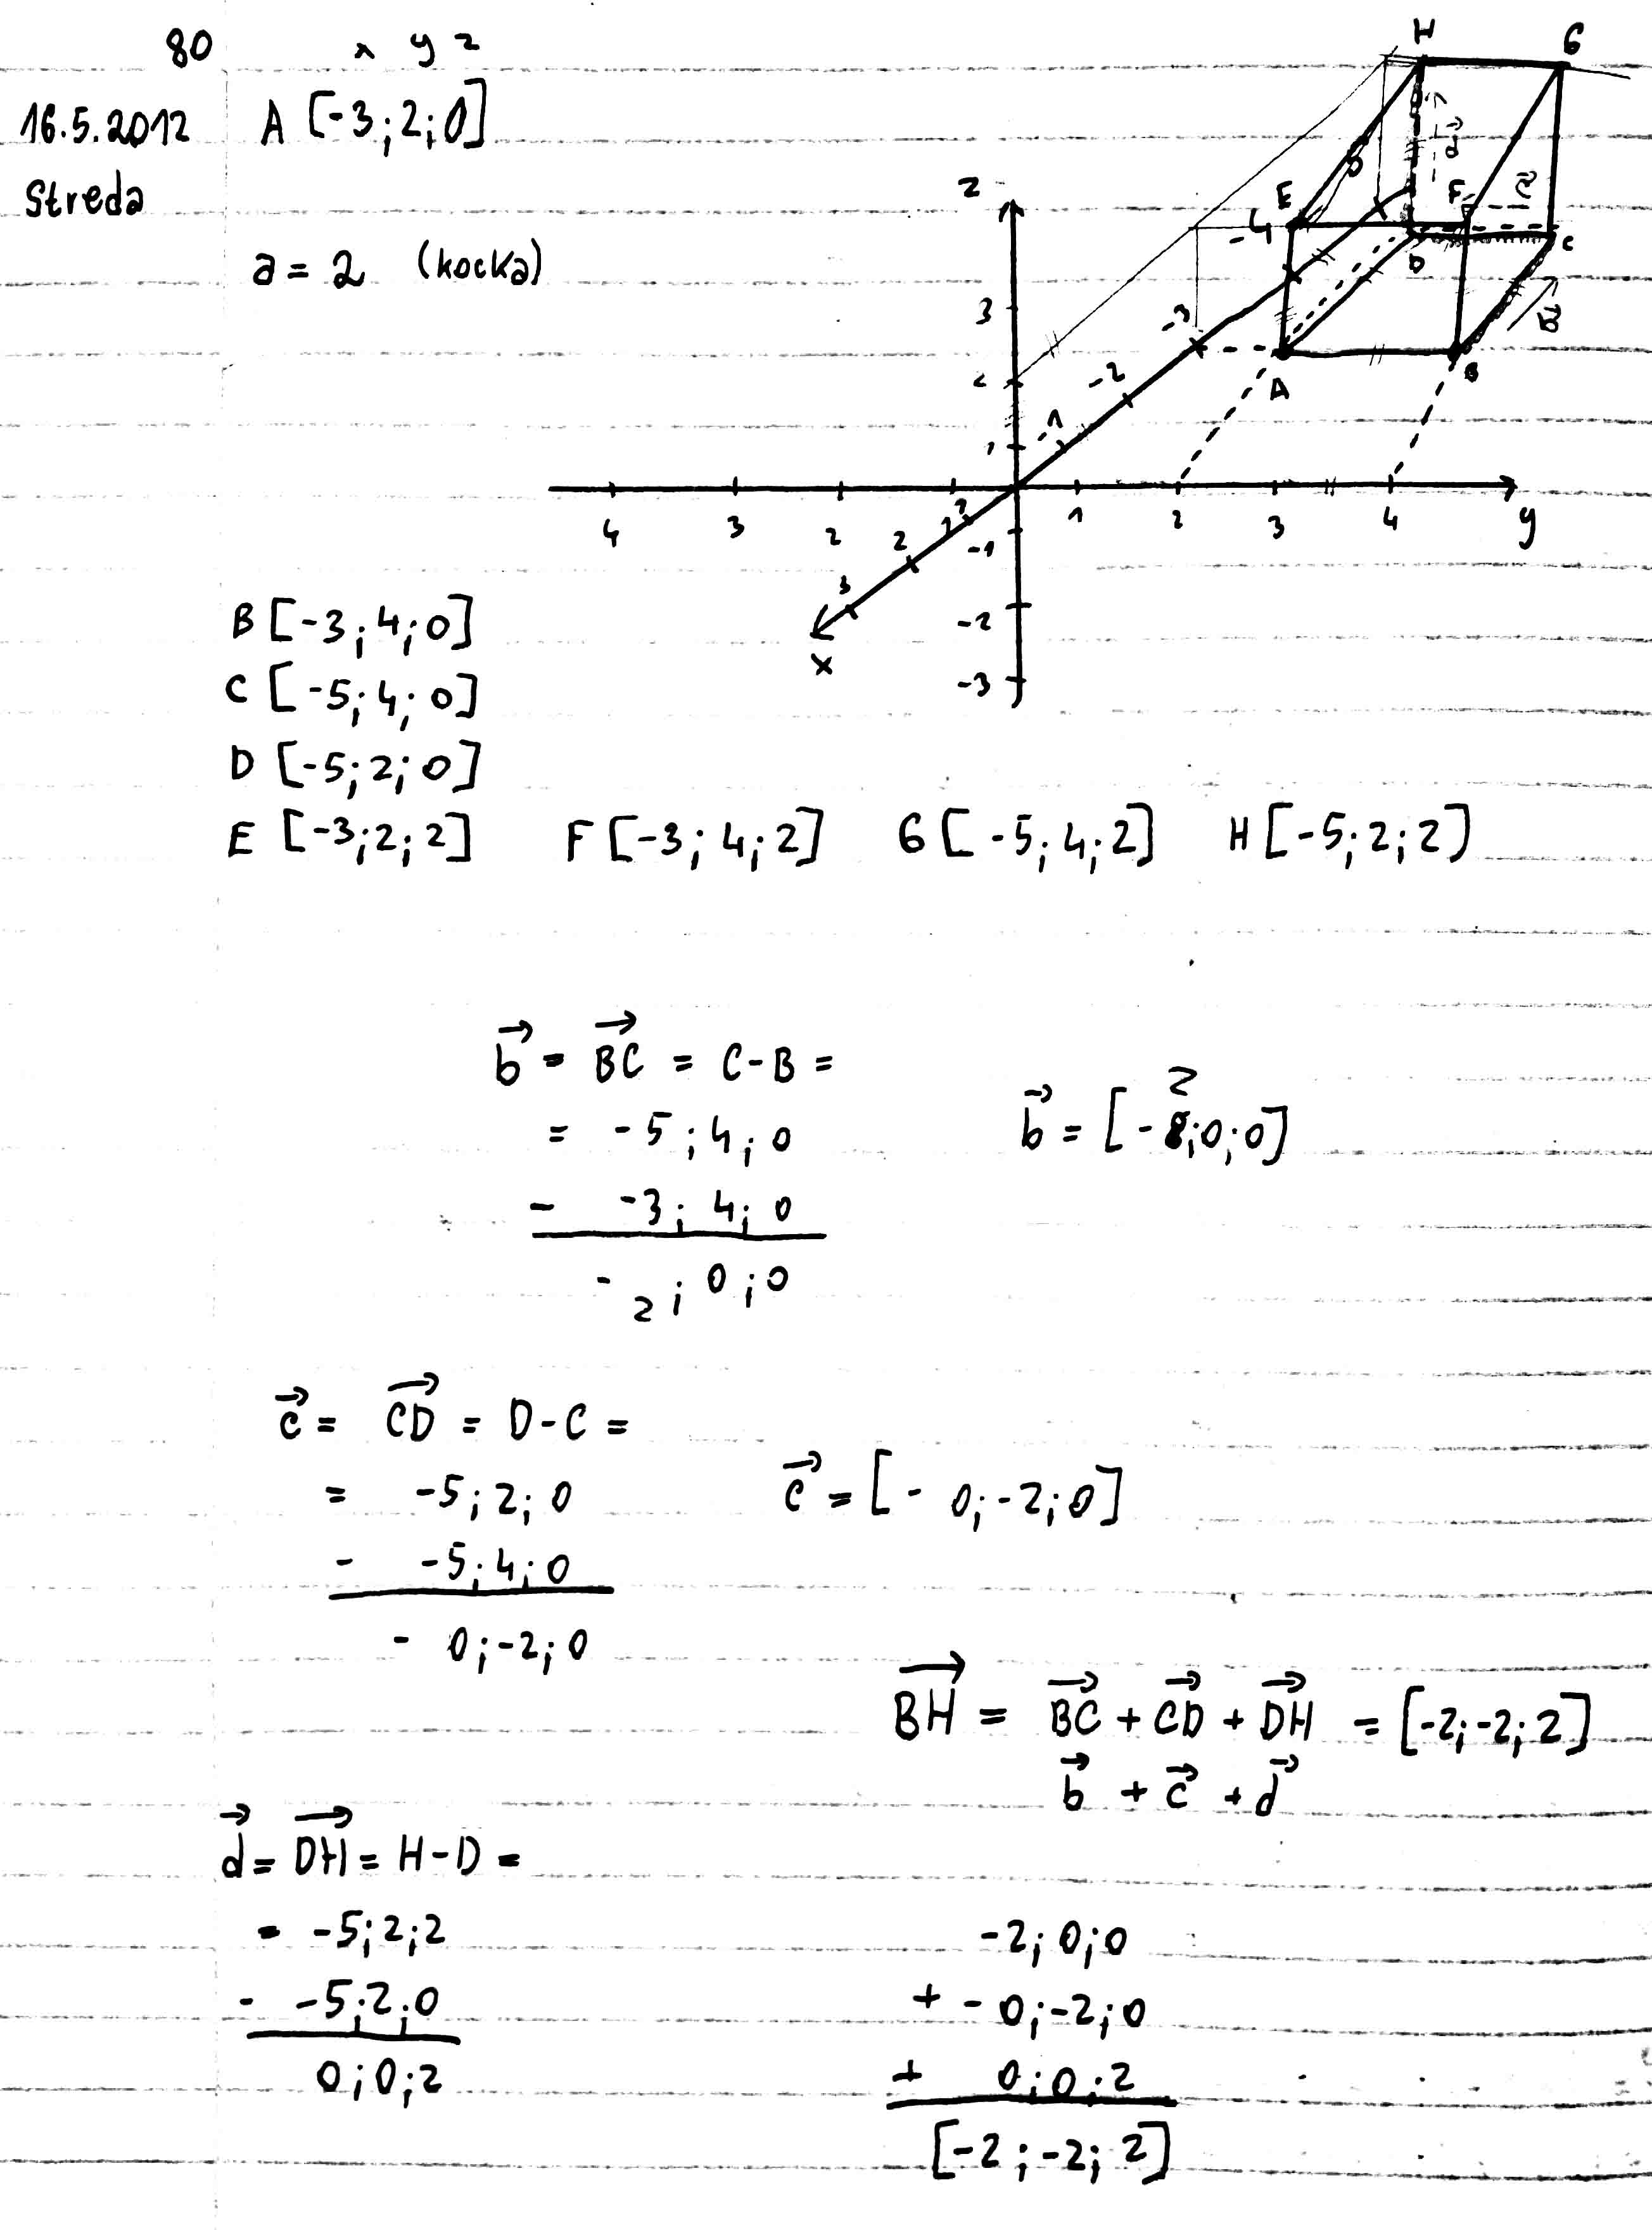 80
x y z
16.5.2012
A [-3;2;0]
Streda
a = 2 (kocka)
H G
d
z
E F c
-4
D C
3
-3
b
2
-2
A B
-1
1
4 3 2 1 1 2 3 4 y
2
-1
3
-2
x
-3
B [-3;4;0]
C [-5;4;0]
D [-5;2;0]
E [-3;2;2] F [-3;4;2] G [-5;4;2] H [-5;2;2]
b = BC = C-B =
= -5;4;0
- -3;4;0
-2;0;0
b = [-2;0;0]
c = CD = D-C =
= -5;2;0
- -5;4;0
- 0;-2;0
c = [- 0;-2;0]
BH = BC + CD + DH = [-2;-2;2]
b + c + d
d = DH = H-D =
= -5;2;2
- -5;2;0
0;0;2
-2;0;0
+ - 0;-2;0
+ 0;0;2
[-2;-2;2]